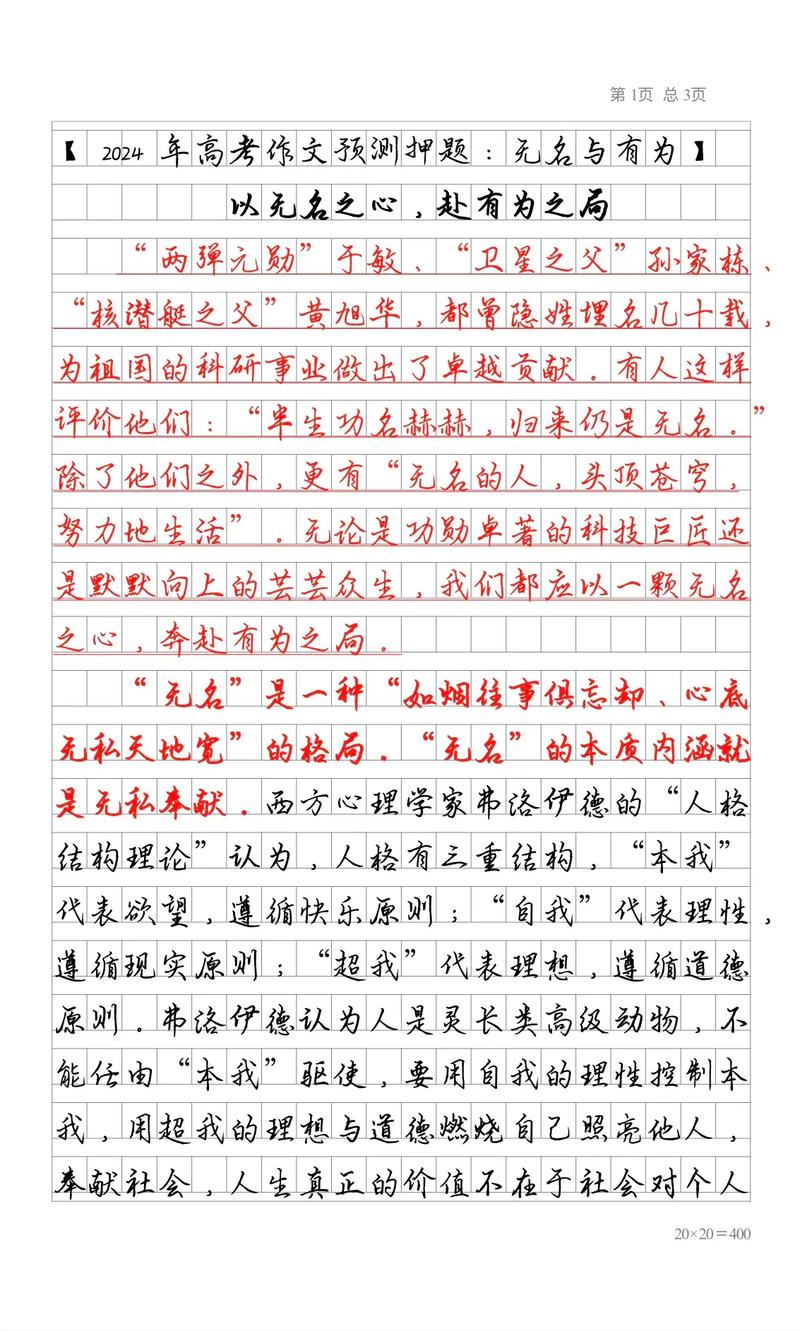 第1页 总3页
【 2024 年高考作文预测押题：无名与有为】
以无名之心，赴有为之局
“两弹元勋”于敏、“卫星之父”孙家栋、
“核潜艇之父”黄旭华，都曾隐姓埋名几十载，
为祖国的科研事业做出了卓越贡献。有人这样
评价他们：“半生功名赫赫，归来仍是无名。”
除了他们之外，更有“无名的人，头顶苍穹，
努力地生活”。无论是功勋卓著的科技巨匠还
是默默向上的芸芸众生，我们都应以一颗无名
之心，奔赴有为之局。
“无名”是一种“如烟往事俱忘却、心底
无私天地宽”的格局。“无名”的本质内涵就
是无私奉献。西方心理学家弗洛伊德的“人格
结构理论”认为，人格有三重结构，“本我”
代表欲望，遵循快乐原则；“自我”代表理性，
遵循现实原则；“超我”代表理想，遵循道德
原则。弗洛伊德认为人是灵长类高级动物，不
能任由“本我”驱使，要用自我的理性控制本
我，用超我的理想与道德燃烧自己照亮他人，
奉献社会，人生真正的价值不在于社会对个人
20×20＝400